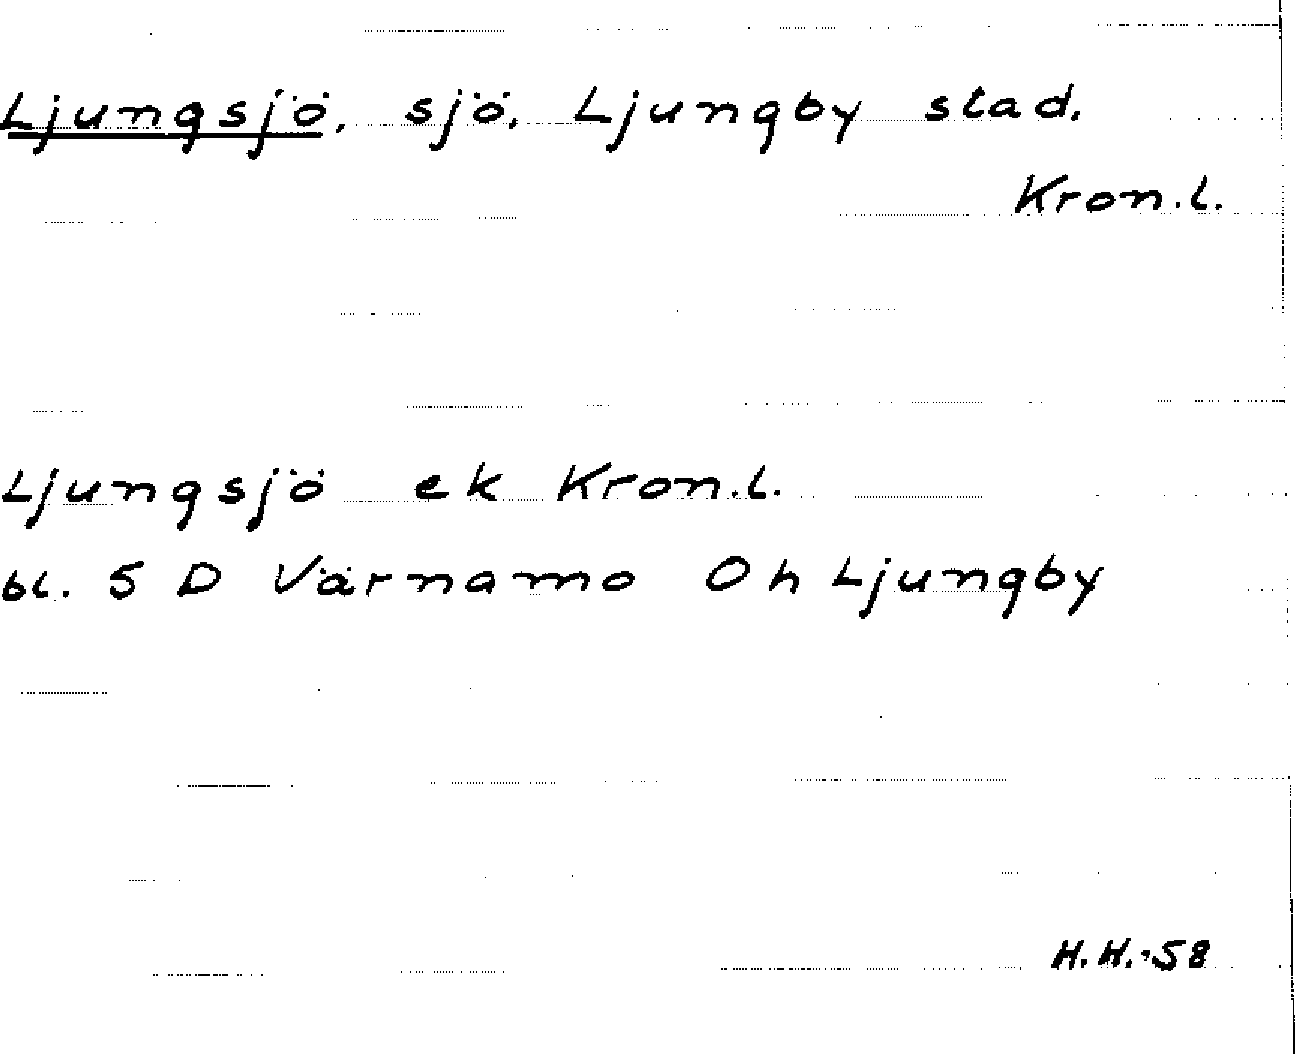 Ljungsjö, sjö, Ljungby stad.
Kron.l.
Ljungsjö ek Kron.l.
bl. 5 D Värnamo Oh Ljungby
H.H.-58